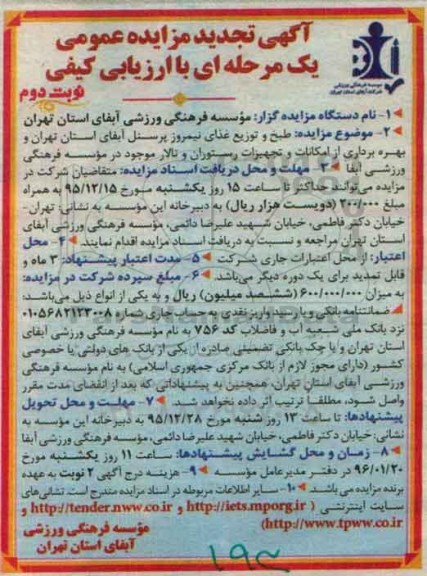 آگهی تجدید مزایده عمومی
یک مرحله ای با ارزیابی کیفی
نوبت دوم
موسسه فرهنگی ورزشی
شرکت آبفای استان تهران
۱- نام دستگاه مزایده گزار: مؤسسه فرهنگی ورزشی آبفای استان تهران
۲- موضوع مزایده: طبخ و توزیع غذای نیمروز پرسنل آبفای استان تهران و
بهره برداری از امکانات و تجهیزات رستوران و تالار موجود در مؤسسه فرهنگی
ورزشی آبفا ۳- مهلت و محل دریافت اسناد مزایده: متقاضیان شرکت در
مزایده می‌توانند حداکثر تا ساعت ۱۵ روز یکشنبه مورخ ۹۵/۱۲/۱۵ به همراه
مبلغ ۲۰۰/۰۰۰ (دویست هزار ریال) به دبیرخانه این مؤسسه به نشانی: تهران-
خیابان دکتر فاطمی، خیابان شهید علیرضا دائمی، مؤسسه فرهنگی ورزشی آبفای
استان تهران مراجعه و نسبت به دریافت اسناد مزایده اقدام نمایند ۴- محل
اعتبار: از محل اعتبارات جاری شرکت ۵- مدت اعتبار پیشنهاد: ۳ ماه و
قابل تمدید برای یک دوره دیگر می‌باشد. ۶- مبلغ سپرده شرکت در مزایده:
به میزان ۶۰۰/۰۰۰/۰۰۰ (ششصد میلیون) ریال و به یکی از انواع ذیل می‌باشد:
ضمانتنامه بانکی و یا رسید واریز نقدی به حساب جاری شماره ۰۱۰۵۶۸۲۱۲۳۰۰۸
نزد بانک ملی شعبه آب و فاضلاب کد ۷۵۶ به نام مؤسسه فرهنگی ورزشی آبفای
استان تهران و یا چک بانکی تضمینی صادره از یکی از بانک های دولتی یا خصوصی
کشور (دارای مجوز لازم از بانک مرکزی جمهوری اسلامی) به نام مؤسسه فرهنگی
ورزشی آبفای استان تهران، همچنین به پیشنهاداتی که بعد از انقضای مدت مقرر
واصل شود، مطلقا ترتیب اثر داده نخواهد شد. ۷- مهلت و محل تحویل
پیشنهادها: تا ساعت ۱۳ روز شنبه مورخ ۹۵/۱۲/۲۸ به دبیرخانه این مؤسسه به
نشانی: خیابان دکتر فاطمی، خیابان شهید علیرضا دائمی، مؤسسه فرهنگی ورزشی آبفا
۸- زمان و محل گشایش پیشنهادها: ساعت ۱۱ روز یکشنبه مورخ
۹۶/۰۱/۲۰ در دفتر مدیرعامل مؤسسه ۹- هزینه درج آگهی ۲ نوبت به عهده
برنده مزایده می باشد ۱۰- سایر اطلاعات مربوطه در اسناد مزایده مندرج است. نشانی‌های
سایت اینترنتی ( http://iets.mporg.ir و http://tender.nww.co.ir و
http://www.tpww.co.ir)
مؤسسه فرهنگی ورزشی
آبفای استان تهران